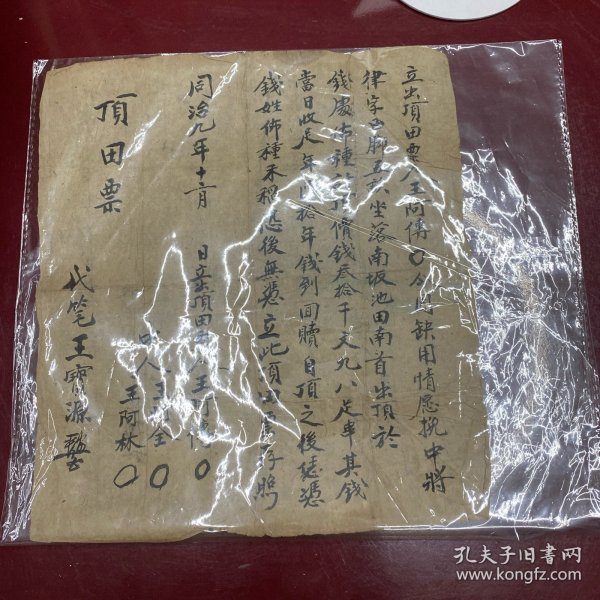 立出頂田票人王阿傳〇今因缺用情愿挽中將
律字 坐落南坂池田南首出頂於
錢 布種 價錢叁拾千文九八足串其錢
當日收足年 拾年錢到回贖自頂之後憑
錢姓佈種禾稻恐後無憑立此頂田票存照
同治九年十二月 日立頂田票人王阿傳〇
人王 全〇
王阿林〇
代笔王寶源
頂田票
孔夫子旧书网
www.kongfz.com